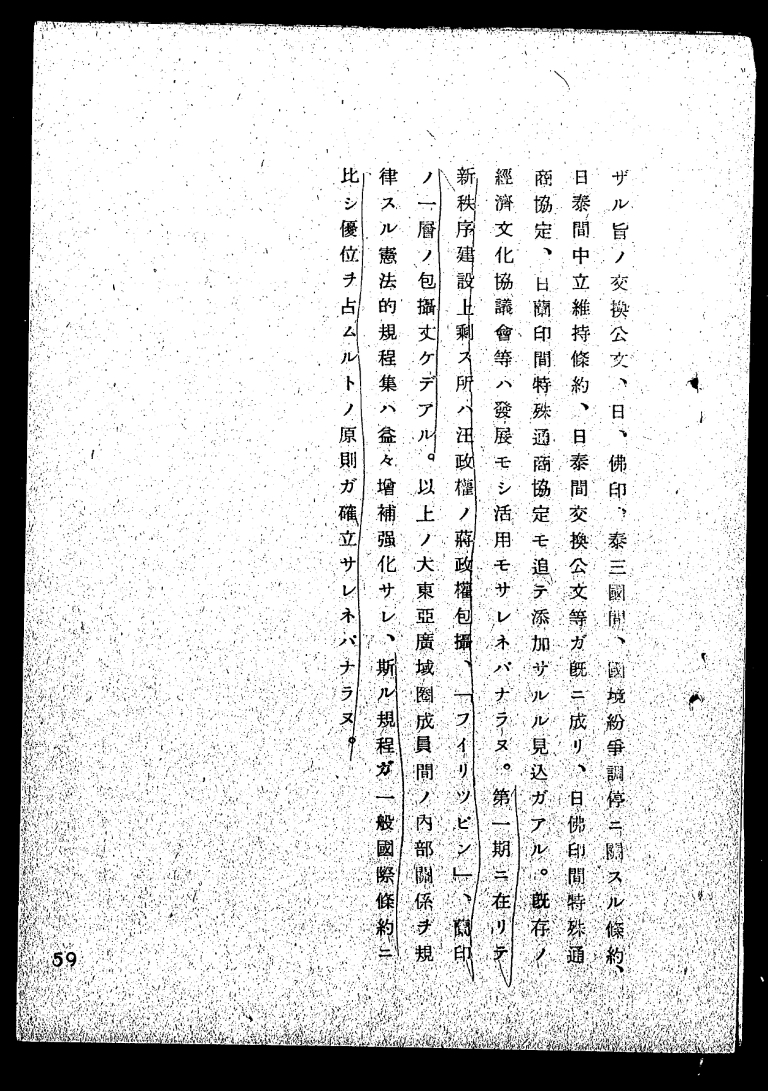 ザル旨ノ交換公文、日、佛印、泰三國間、國境紛爭調停ニ關スル條約、
日泰間中立維持條約、日泰間交換公文等ガ既ニ成リ、日佛印間特殊通
商協定、日蘭印間特殊通商協定モ追テ添加サルル見込ガアル。既存ノ
經濟文化協議會等ハ發展モシ活用モサレネバナラヌ。第一期ニ在リテ
新秩序建設上剩ス所ハ汪政權ノ蔣政權包攝、「フイリツピン」、蘭印
ノ一層ノ包攝丈ケデアル。以上ノ大東亞廣域圏成員間ノ內部關係ヲ規
律スル憲法的規程集ハ益々增補强化サレ、斯ル規程ガ一般國際條約ニ
比シ優位ヲ占ムルトノ原則ガ確立サレネバナラヌ。
59